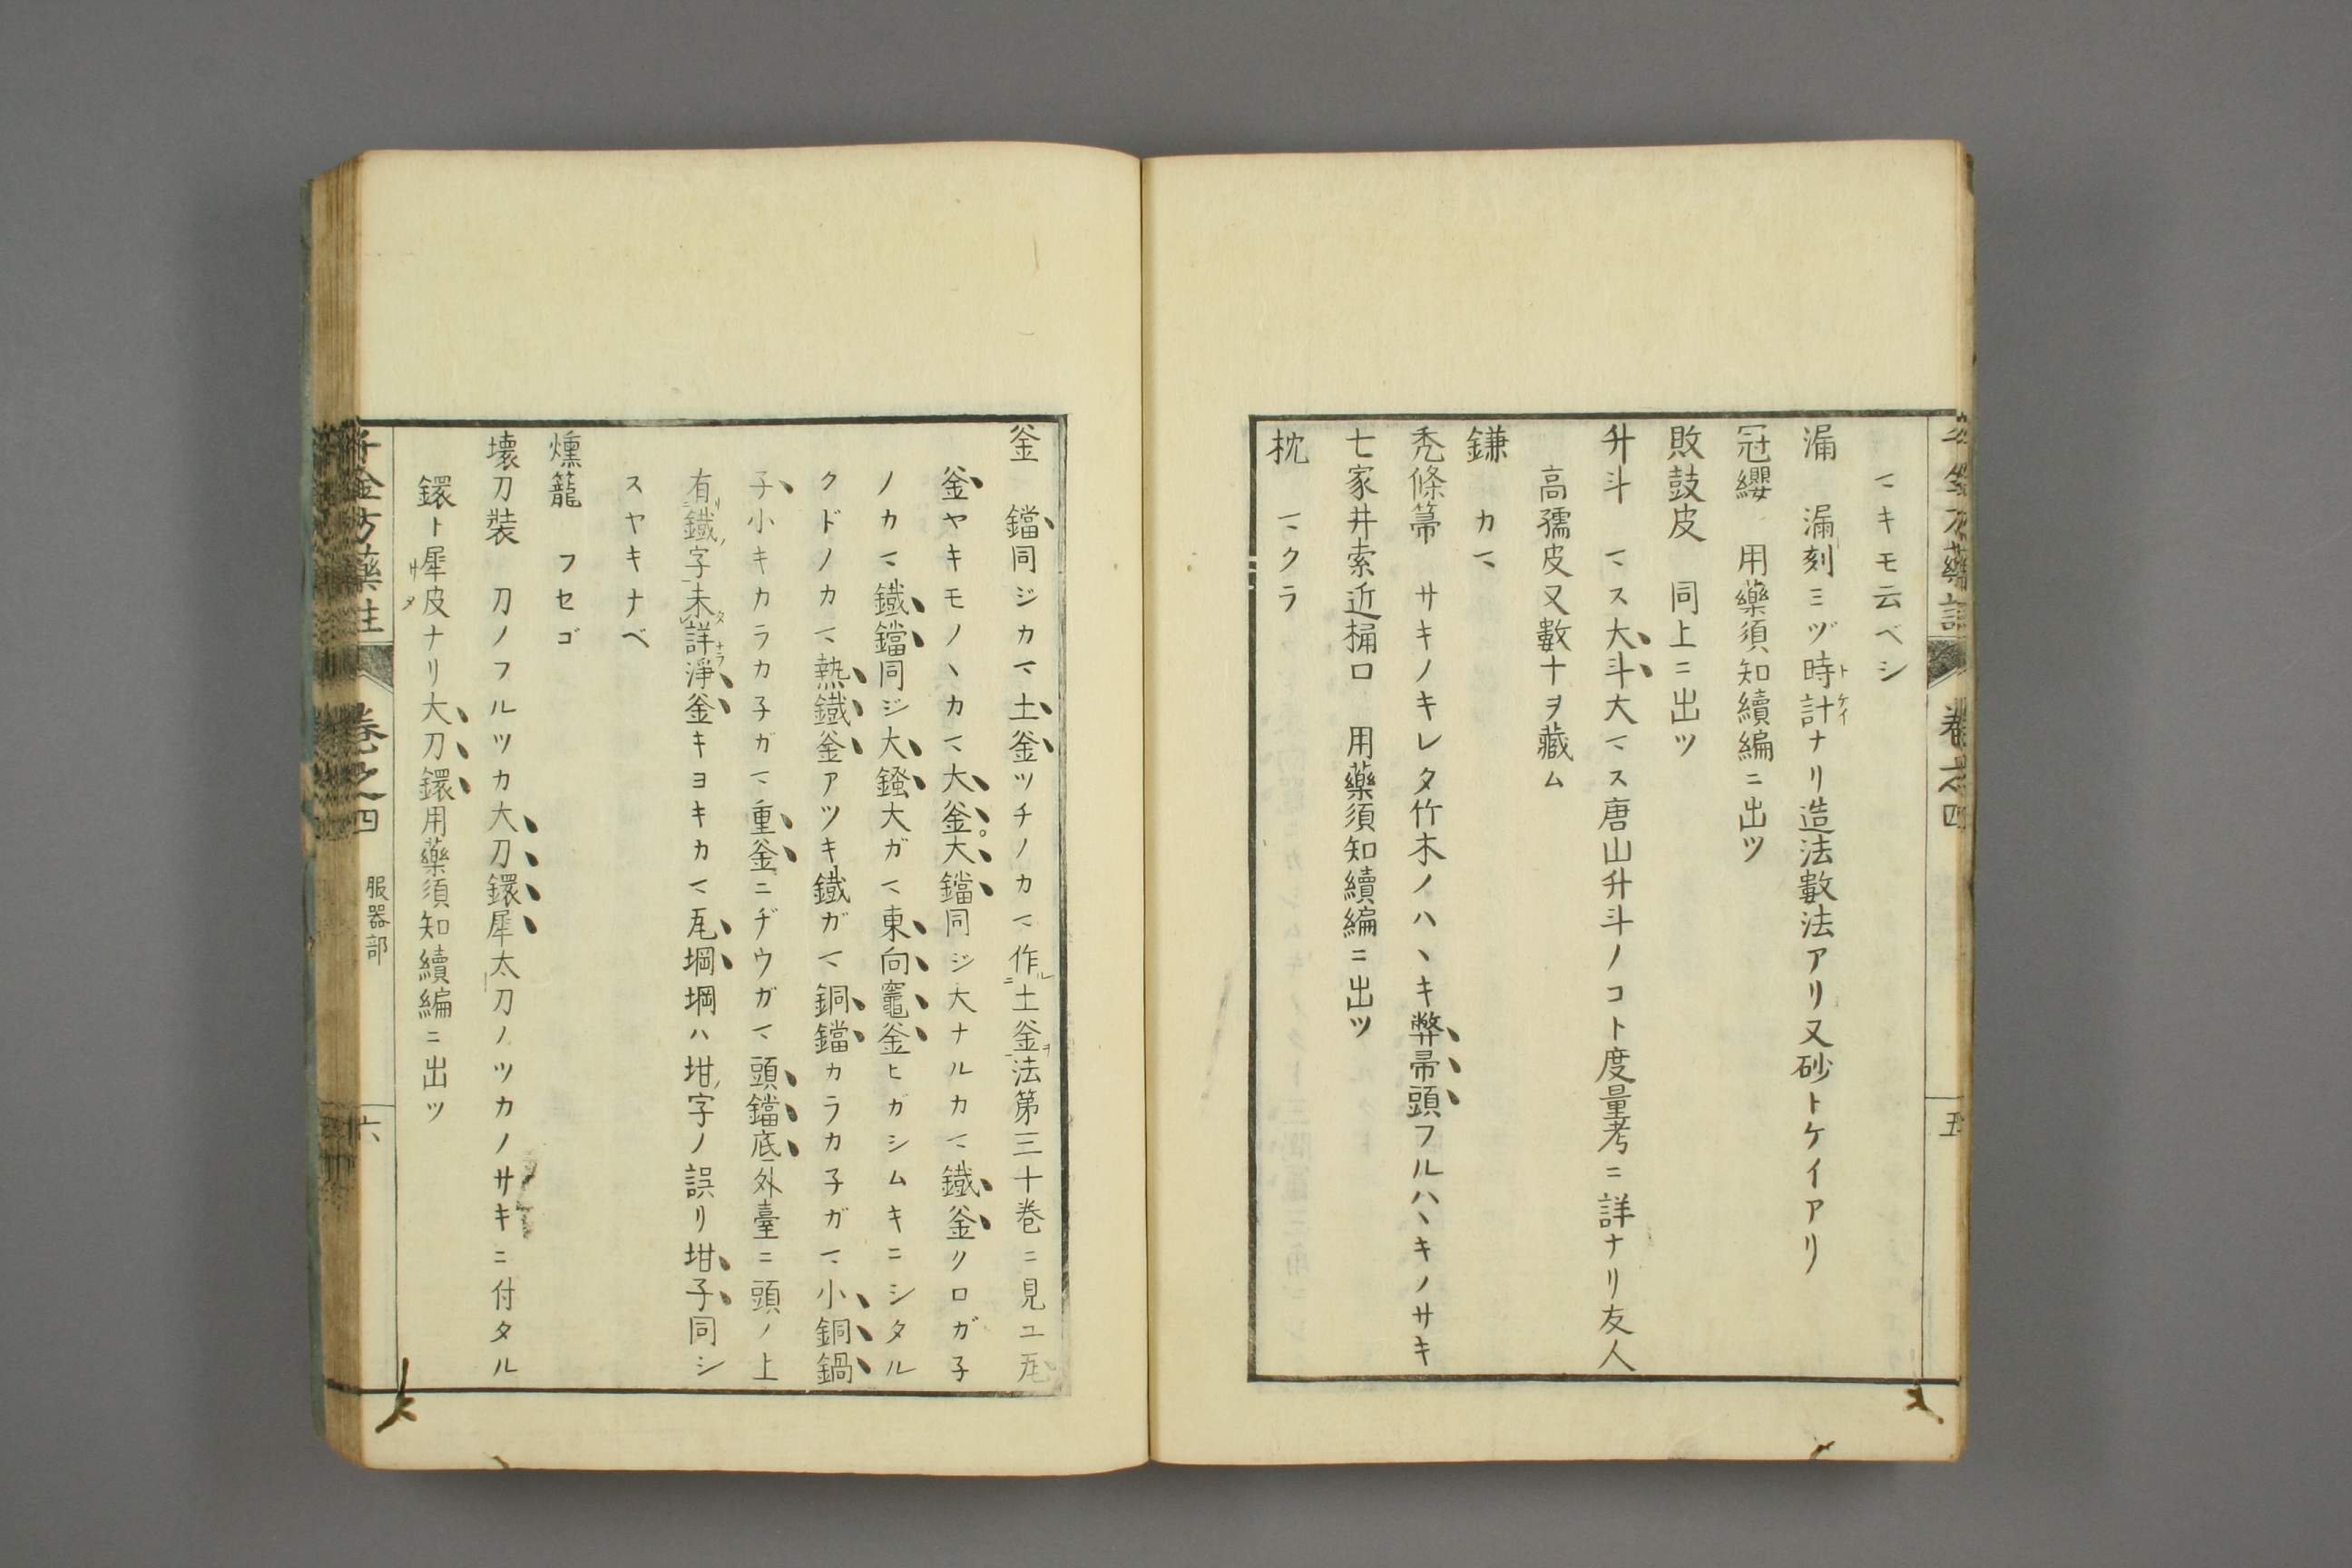 マキモ云ベシ
漏　漏刻ミヅ時計ナリ造法數法アリ又砂トケイアリ
トケイ
冠纓　用藥須知續編ニ出ツ
敗鼓皮　同上ニ出ツ
升斗　マス大斗大マス唐山升斗ノコト度量考ニ詳ナリ友人
高孺皮又數十ヲ藏ム
鎌　カマ
禿條箒　サキノキレタ竹木ノハヽキ弊帚頭フルハヽキノサキ
七家井索近桶口　用藥須知續編ニ出ツ
枕　マクラ
五
釜　鐺同ジカマ土釜ツチノカマ作ルニ土釜ヲ法第三十巻ニ見ユ瓦
釜ヤキモノヽカマ大釜。大鐺同ジ大ナルカマ鐵釜クロガ子
ノカマ鐵鐺同ジ大鏂大ガマ東向竈釜ヒガシムキニシタル
クドノカマ熱鐵釜アツキ鐵ガマ銅鐺カラカ子ガマ小銅鍋
子小キカラカ子ガマ重釜ニヂウガマ頭鐺底外臺ニ頭ノ上
有リ鐵ノ字未タ詳ナラ淨釜キヨキカマ瓦堈堈ハ坩ノ字ノ誤リ坩子同シ
スヤキナベ
燻籠　フセゴ
壊刀裝　刀ノフルツカ大刀鐶犀太刀ノツカノサキニ付タル
鐶ト犀皮ナリ大刀鐶用藥須知續編ニ出ツ
サメ
千金方藥註　卷之四　服器部　六